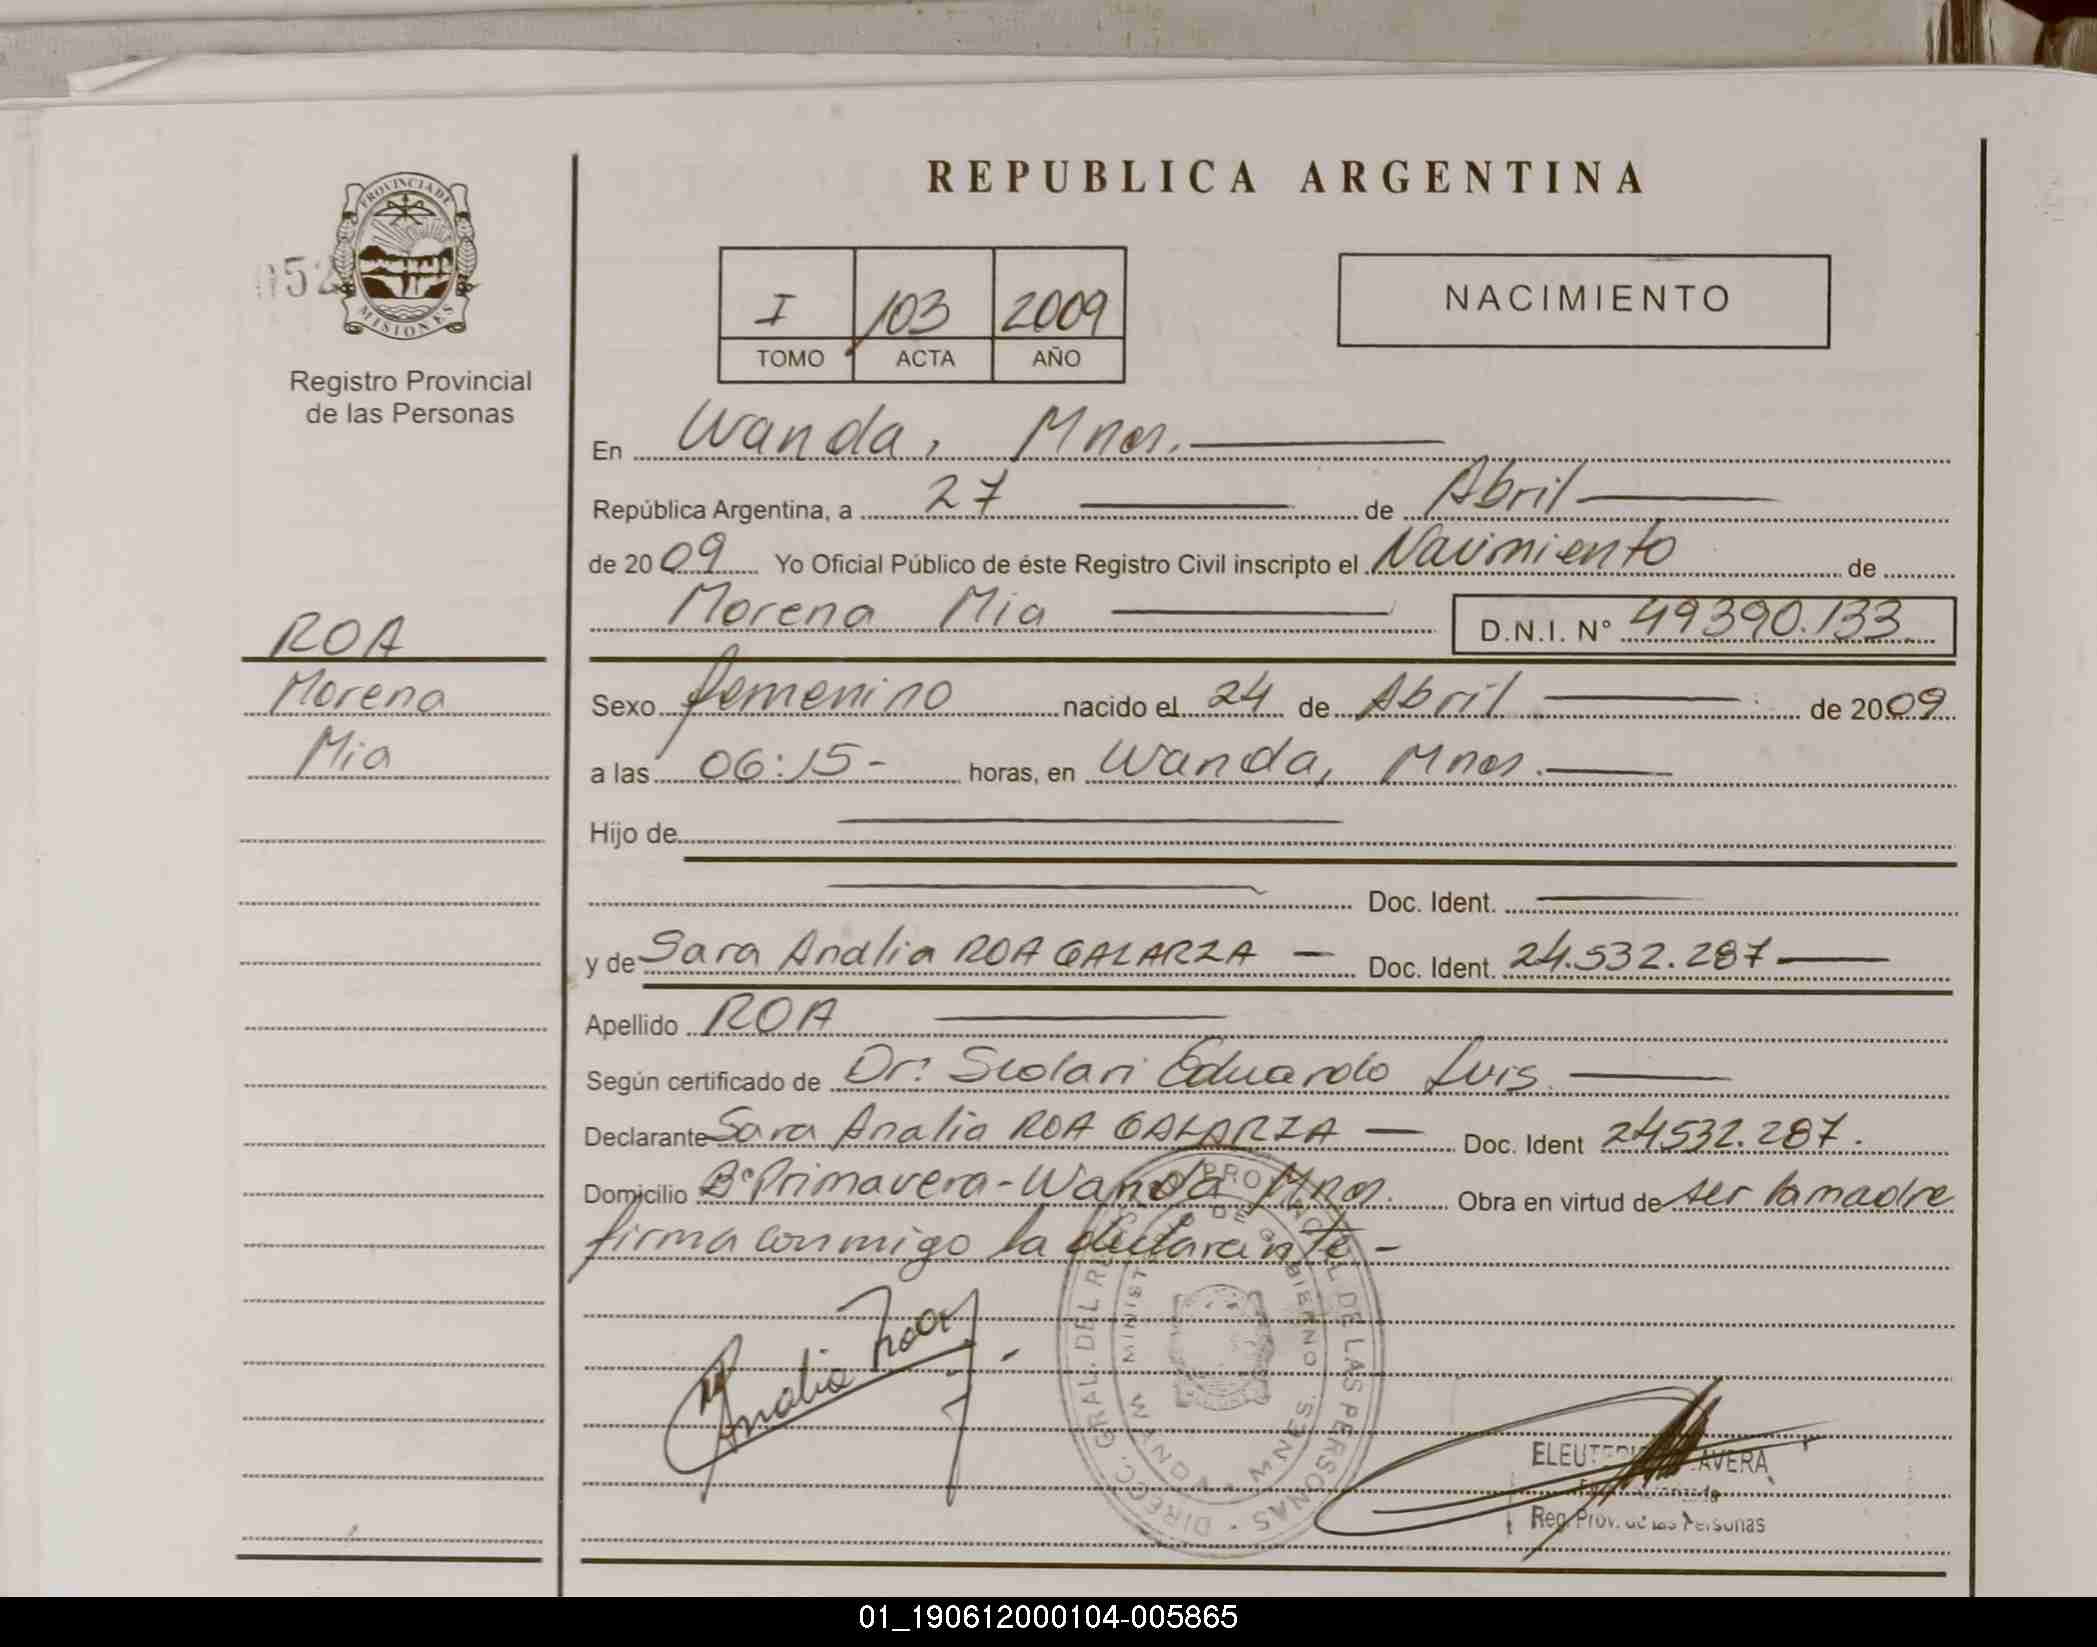 REPUBLICA ARGENTINA
PROVINCIA DE
MISIONES
052
Registro Provincial
de las Personas
I 103 2009
TOMO ACTA AÑO
NACIMIENTO
En Wanda, Mnes.
República Argentina, a 27 de Abril
de 2009 Yo Oficial Público de éste Registro Civil inscripto el Nacimiento de
Morena Mia D.N.I. N° 49390.133
ROA
Morena
Mia
Sexo femenino nacido el 24 de Abril de 2009
a las 06:15- horas, en Wanda, Mnes.
Hijo de
Doc. Ident.
y de Sara Analia ROA GALARZA — Doc. Ident. 24.532.287
Apellido ROA
Según certificado de Dr: Scolari Eduardo Luis
Declarante Sara Analia ROA GALARZA — Doc. Ident 24532.287.
Domicilio B° Primavera - Wanda Mnes. Obra en virtud de ser la madre
firma conmigo la declarante -
Analia Roa
DIRECC. GRAL. DEL PROVINCIAL DE LAS PERSONAS
MINIST DE GOBIERNO
WANDA MNES.
AVERA
Reg. Prov. de las Personas
01_190612000104-005865